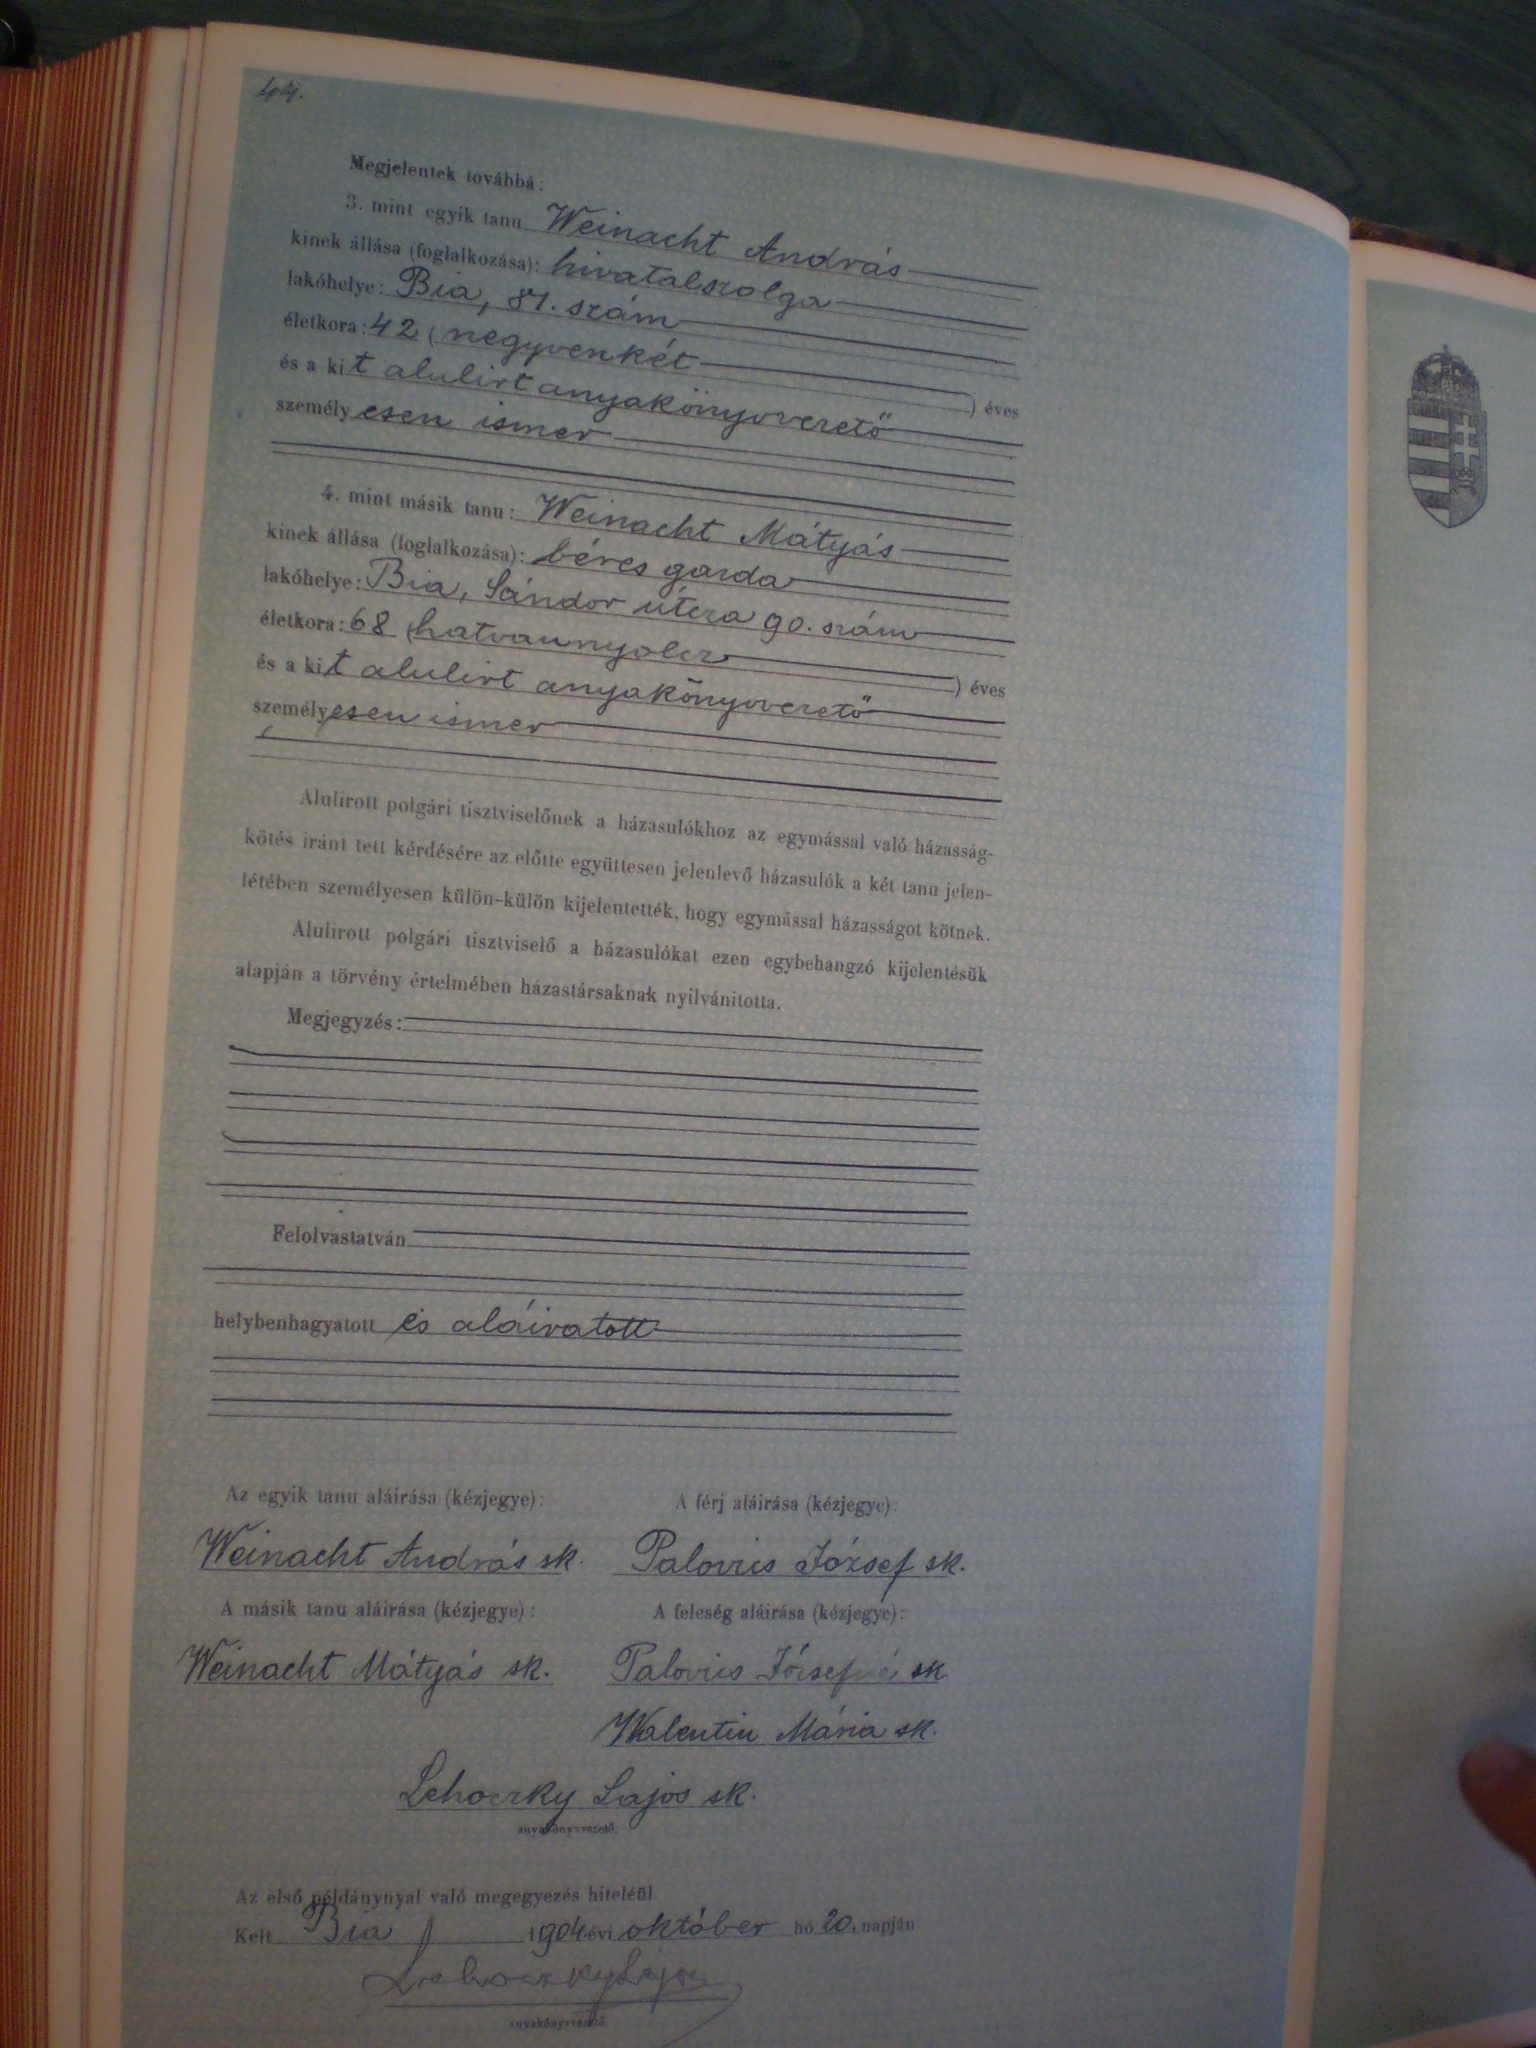 Megjelentek továbbá:
3. mint egyik tanu Weinacht András
kinek állása (foglalkozása): hivatalszolga
lakóhelye: Bia, 81. szám
életkora: 42 (negyvenkét ) éves
és a kit alulirt anyakönyvvezető
személyesen ismer
4. mint másik tanu: Weinacht Mátyás
kinek állása (foglalkozása): béres gazda
lakóhelye: Bia, Sándor útcza 90. szám
életkora: 68 (hatvannyolcz ) éves
és a kit alulirt anyakönyvvezető
személyesen ismer
Alulirott polgári tisztviselőnek a házasulókhoz az egymással való házasság-
kötés iránt tett kérdésére az előtte együttesen jelenlevő házasulók a két tanu jelen-
létében személyesen külön-külön kijelentették, hogy egymással házasságot kötnek.
Alulirott polgári tisztviselő a házasulókat ezen egybehangzó kijelentésük
alapján a törvény értelmében házastársaknak nyilvánitotta.
Megjegyzés:
Felolvastatván
helybenhagyatott és aláiratott
Az egyik tanu aláirása (kézjegye): A férj aláirása (kézjegye):
Weinacht András sk. Palovics József sk.
A másik tanu aláirása (kézjegye): A feleség aláirása (kézjegye):
Weinacht Mátyás sk. Palovics Józsefné sk
Walentin Mária sk.
Lehoczky Lajos sk.
anyakönyvvezető.
Az első példánynyal való megegyezés hiteléül.
Kelt Bia 1904 évi október hó 20. napján
Lehoczky Lajos
anyakönyvvezető.